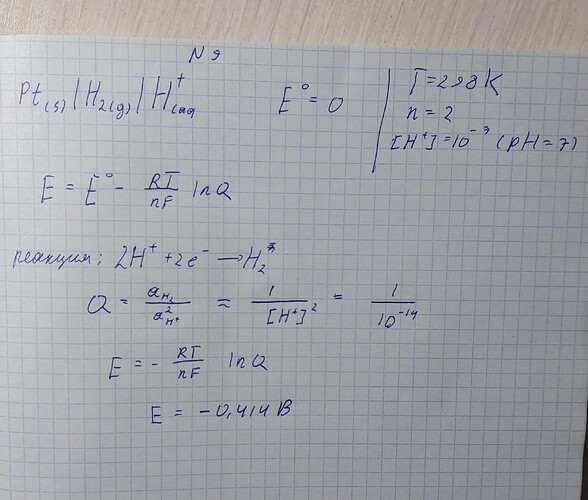 N 9
Pt(s) | H2(g) | H+(aq)    E° = 0
T = 298K
n = 2
[H+] = 10^-7 (pH = 7)
E = E° - RT/nF lnQ
реакция: 2H+ + 2e- → H2
Q = aH2/a²H+ ≈ 1/[H+]² = 1/10^-14
E = - RT/nF lnQ
E = -0,414 В